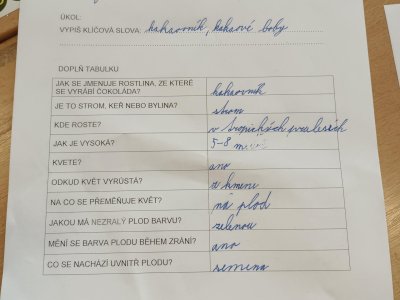 ÚKOL:
VYPIŠ KLÍČOVÁ SLOVA: kakaovník, kakaové boby
DOPLŇ TABULKU
JAK SE JMENUJE ROSTLINA, ZE KTERÉ SE VYRÁBÍ ČOKOLÁDA? kakaovník
JE TO STROM, KEŘ NEBO BYLINA? strom
KDE ROSTE? v tropických pralesích
JAK JE VYSOKÁ? 5-8 metrů
KVETE? ano
ODKUD KVĚT VYRŮSTÁ? z kmene
NA CO SE PŘEMĚŇUJE KVĚT? na plod
JAKOU MÁ NEZRALÝ PLOD BARVU? zelenou
MĚNÍ SE BARVA PLODU BĚHEM ZRÁNÍ? ano
CO SE NACHÁZÍ UVNITŘ PLODU? semena